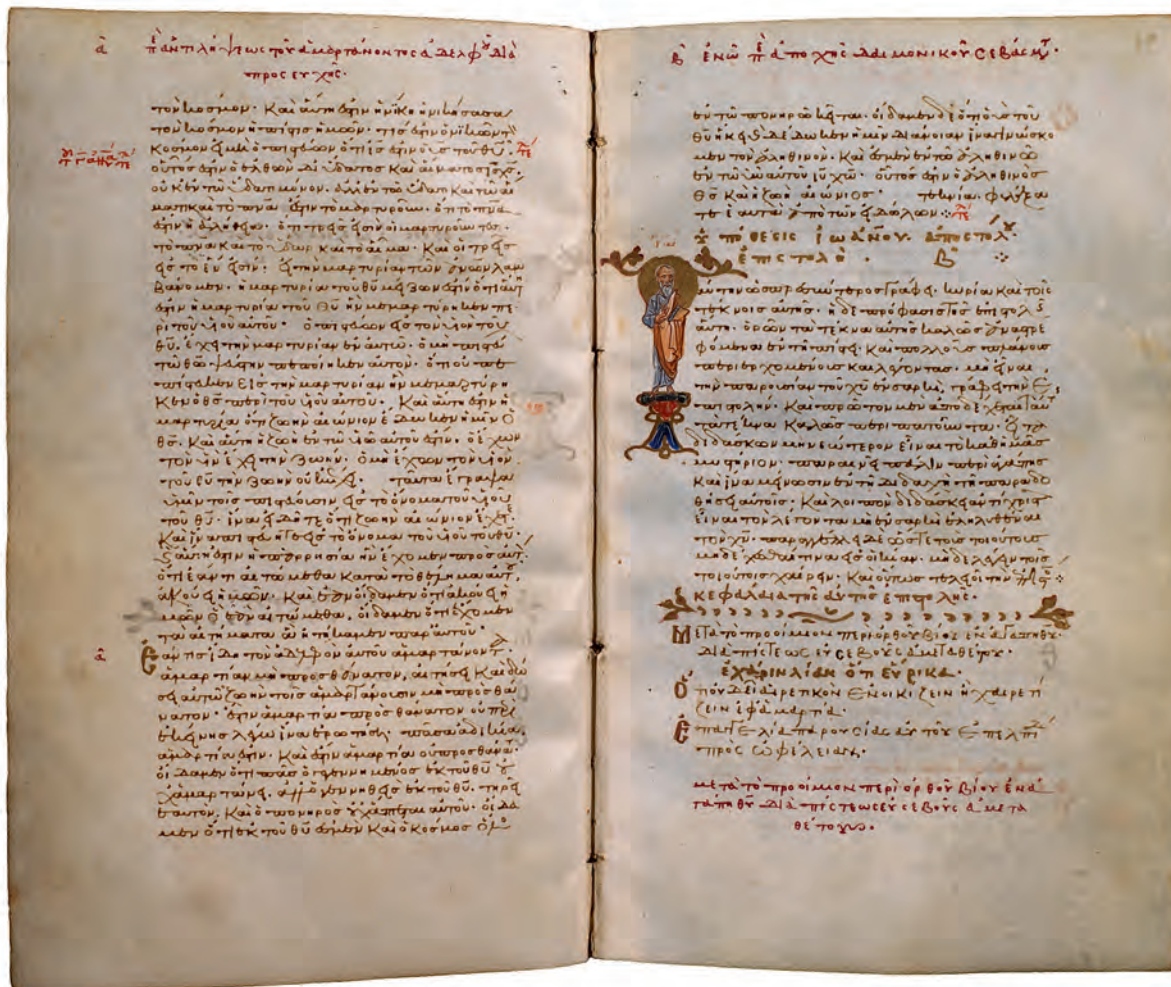 τὸν κόσμον· καὶ αὕτη ἐστὶν ἡ νίκη ἡ νικήσασα
τὸν κόσμον ἡ πίστις ἡμῶν· τίς ἐστιν ὁ νικῶν τὸν
κόσμον εἰ μὴ ὁ πιστεύων ὅτι ἰς ἐστὶν ὁ υς τοῦ θυ·
οὗτός ἐστιν ὁ ἐλθὼν δι ὕδατος καὶ αἵματος ις χς·
οὐκ ἐν τῷ ὕδατι μόνον· ἀλλ ἐν τῷ ὕδατι καὶ τῷ αἵ
ματι καὶ τὸ πνα ἐστιν τὸ μαρτυροῦν· ὅτι τὸ πνα
ἐστὶν ἡ ἀλήθεια· ὅτι τρεῖς εἰσὶν οἱ μαρτυροῦντες·
τὸ πνα καὶ τὸ ὕδωρ καὶ τὸ αἷμα· καὶ οἱ τρεῖς
εἰς τὸ ἕν εἰσιν· εἰ τὴν μαρτυρίαν τῶν ἀνων λαμ
βάνομεν· ἡ μαρτυρία τοῦ θυ μείζων ἐστὶν ὅτι αὕτη
ἐστὶν ἡ μαρτυρία τοῦ θυ ἣν μεμαρτύρηκεν πε
ρὶ τοῦ υἱοῦ αὐτοῦ· ὁ πιστεύων εἰς τὸν υἱὸν τοῦ
θυ· ἔχει τὴν μαρτυρίαν ἐν αὐτῷ· ὁ μὴ πιστεύων
τῷ θω· ψεύστην πεποίηκεν αὐτόν· ὅτι οὐ πε
πίστευκεν εἰς τὴν μαρτυρίαν ἣν μεμαρτύρη
κεν ὁ θς περὶ τοῦ υἱοῦ αὐτοῦ· καὶ αὕτη ἐστὶν ἡ
μαρτυρία ὅτι ζωὴν αἰώνιον ἔδωκεν ἡμῖν ὁ
θς· καὶ αὕτη ἡ ζωὴ ἐν τῷ υἱῷ αὐτοῦ ἐστιν· ὁ ἔχων
τὸν υν ἔχει τὴν ζωήν· ὁ μὴ ἔχων τὸν υἱὸν
τοῦ θυ τὴν ζωὴν οὐκ ἔχει· ταῦτα ἔγραψα
ὑμῖν τοῖς πιστεύουσιν εἰς τὸ ὄνομα τοῦ υἱοῦ
τοῦ θυ· ἵνα εἰδῆτε ὅτι ζωὴν αἰώνιον ἔχετε
καὶ ἵνα πιστεύητε εἰς τὸ ὄνομα τοῦ υἱοῦ τοῦ θυ·
αὕτη ἐστὶν ἡ παρρησία ἣν ἔχομεν πρὸς αὐτ
ὅτι ἐάν τι αἰτώμεθα κατὰ τὸ θέλημα αὐτ
ἀκούει ἡμῶν· καὶ ἐὰν οἴδαμεν ὅτι ἀκούει ἡ
μῶν ὃ ἐὰν αἰτώμεθα, οἴδαμεν ὅτι ἔχομεν
τὰ αἰτήματα ἃ ᾐτήκαμεν παρ αὐτοῦ·
α Ἐάν τις ἴδῃ τὸν ἀδελφὸν αὐτοῦ ἁμαρτάνοντα
ἁμαρτίαν μὴ πρὸς θάνατον, αἰτήσει καὶ δώ
σει αὐτῷ ζωὴν τοῖς ἁμαρτάνουσιν μὴ πρὸς θά
νατον· ἔστιν ἁμαρτία πρὸς θάνατον οὐ περὶ
ἐκείνης λέγω ἵνα ἐρωτήσῃ· πᾶσα ἀδικία
ἁμαρτία ἐστίν· καὶ ἔστιν ἁμαρτία οὐ πρὸς θάνατ
οἴδαμεν ὅτι πᾶς ὁ γεγεννημένος ἐκ τοῦ θυ οὐ
χ ἁμαρτάνει· ἀλλ ὁ γεννηθεὶς ἐκ τοῦ θυ· τηρεῖ
ἑαυτόν· καὶ ὁ πονηρὸς οὐχ ἅπτεται αὐτοῦ· οἴδα
μεν ὅτι ἐκ τοῦ θυ ἐσμεν καὶ ὁ κόσμος ὅλος
ἐν τῷ πονηρῷ κεῖται· οἴδαμεν δὲ ὅτι ὁ υς τοῦ
θυ ἥκει· δέδωκεν ἡμῖν διάνοιαν ἵνα γινώσκω
μεν τὸν ἀληθινόν· καὶ ἐσμὲν ἐν τῷ ἀληθινῷ
ἐν τῷ υω αὐτοῦ ιυ χω· οὗτός ἐστιν ὁ ἀληθινὸς
θς καὶ ἡ ζωὴ αἰώνιος· τεκνία· φυλάξα
τε ἑαυτὰ ἀπὸ τῶν εἰδώλων
ὑπόθεσις ἰωάννου ἀποστόλου
ἐπιστολὸ · Β
αὐτὴν ὡς πρεσβύτερος γράφει κυρίᾳ καὶ τοῖς
τέκνοις αὐτῆς· ἡ δὲ πρόφασις τῆς ἐπιστολῆς
αὕτη· ὁρῶν τὰ τέκνα αὐτῆς καλῶς ἀναστρε
φόμενα ἐν τῇ πίστει· καὶ πολλοὺς πλάνους
περιερχομένους καὶ λέγοντας· μὴ εἶναι
τὴν παρουσίαν τοῦ χυ ἐν σαρκί, γράφει τὴν ἐ
πιστολήν· καὶ πρῶτον μὲν ἀποδέχεται
τὰ τέκνα καλῶς περιπατοῦντα·
διδάσκων μὴ νεώτερον εἶναι τὸ καθ ἡμᾶς
μυστήριον· παραινεῖ πάλιν περὶ ἀγάπης
καὶ ἵνα μένωσιν ἐν τῇ διδαχῇ τῇ παραδο
θείσῃ αὐτοῖς· καὶ λοιπὸν διδάσκει ἀντίχριστ
εἶναι τὸν λέγοντα μὴ ἐν σαρκὶ ἐληλυθέναι
τὸν χν· παραγγέλλει δὲ ὥστε τοὺς τοιούτους
μὴ δέχεσθαί τινας εἰς οἰκίαν· μηδὲ λέγειν τοῖς
τοιούτοις χαίρειν· καὶ οὕτως τελειοῖ τὴν
κεφάλαια τῆς αὐτῆς ἐπιστολῆς·
Μετὰ τὸ προοίμιον περὶ ὀρθοῦ βίου ἐν ἀγάπῃ θυ·
διὰ πίστεως εὐσεβοῦς ἀμεταθέτου·
ἐχάρην λίαν ὅτι εὕρικα·
Ὅτι οὐ δεῖ αἱρετικὸν εἰνοικίζειν ἢ χαιρετί
ζειν ἐφ ἁμαρτίᾳ·
Ἐπαγγελία παρουσίας αὐτοῦ ἐπ ἐλπίδι
πρὸς ὠφέλειαν·
μετὰ τὸ προοίμιον περὶ ὀρθοῦ βίου ἐν ἀ
γάπῃ θυ διὰ πίστεως εὐσεβοῦς ἀμετα
θέτου